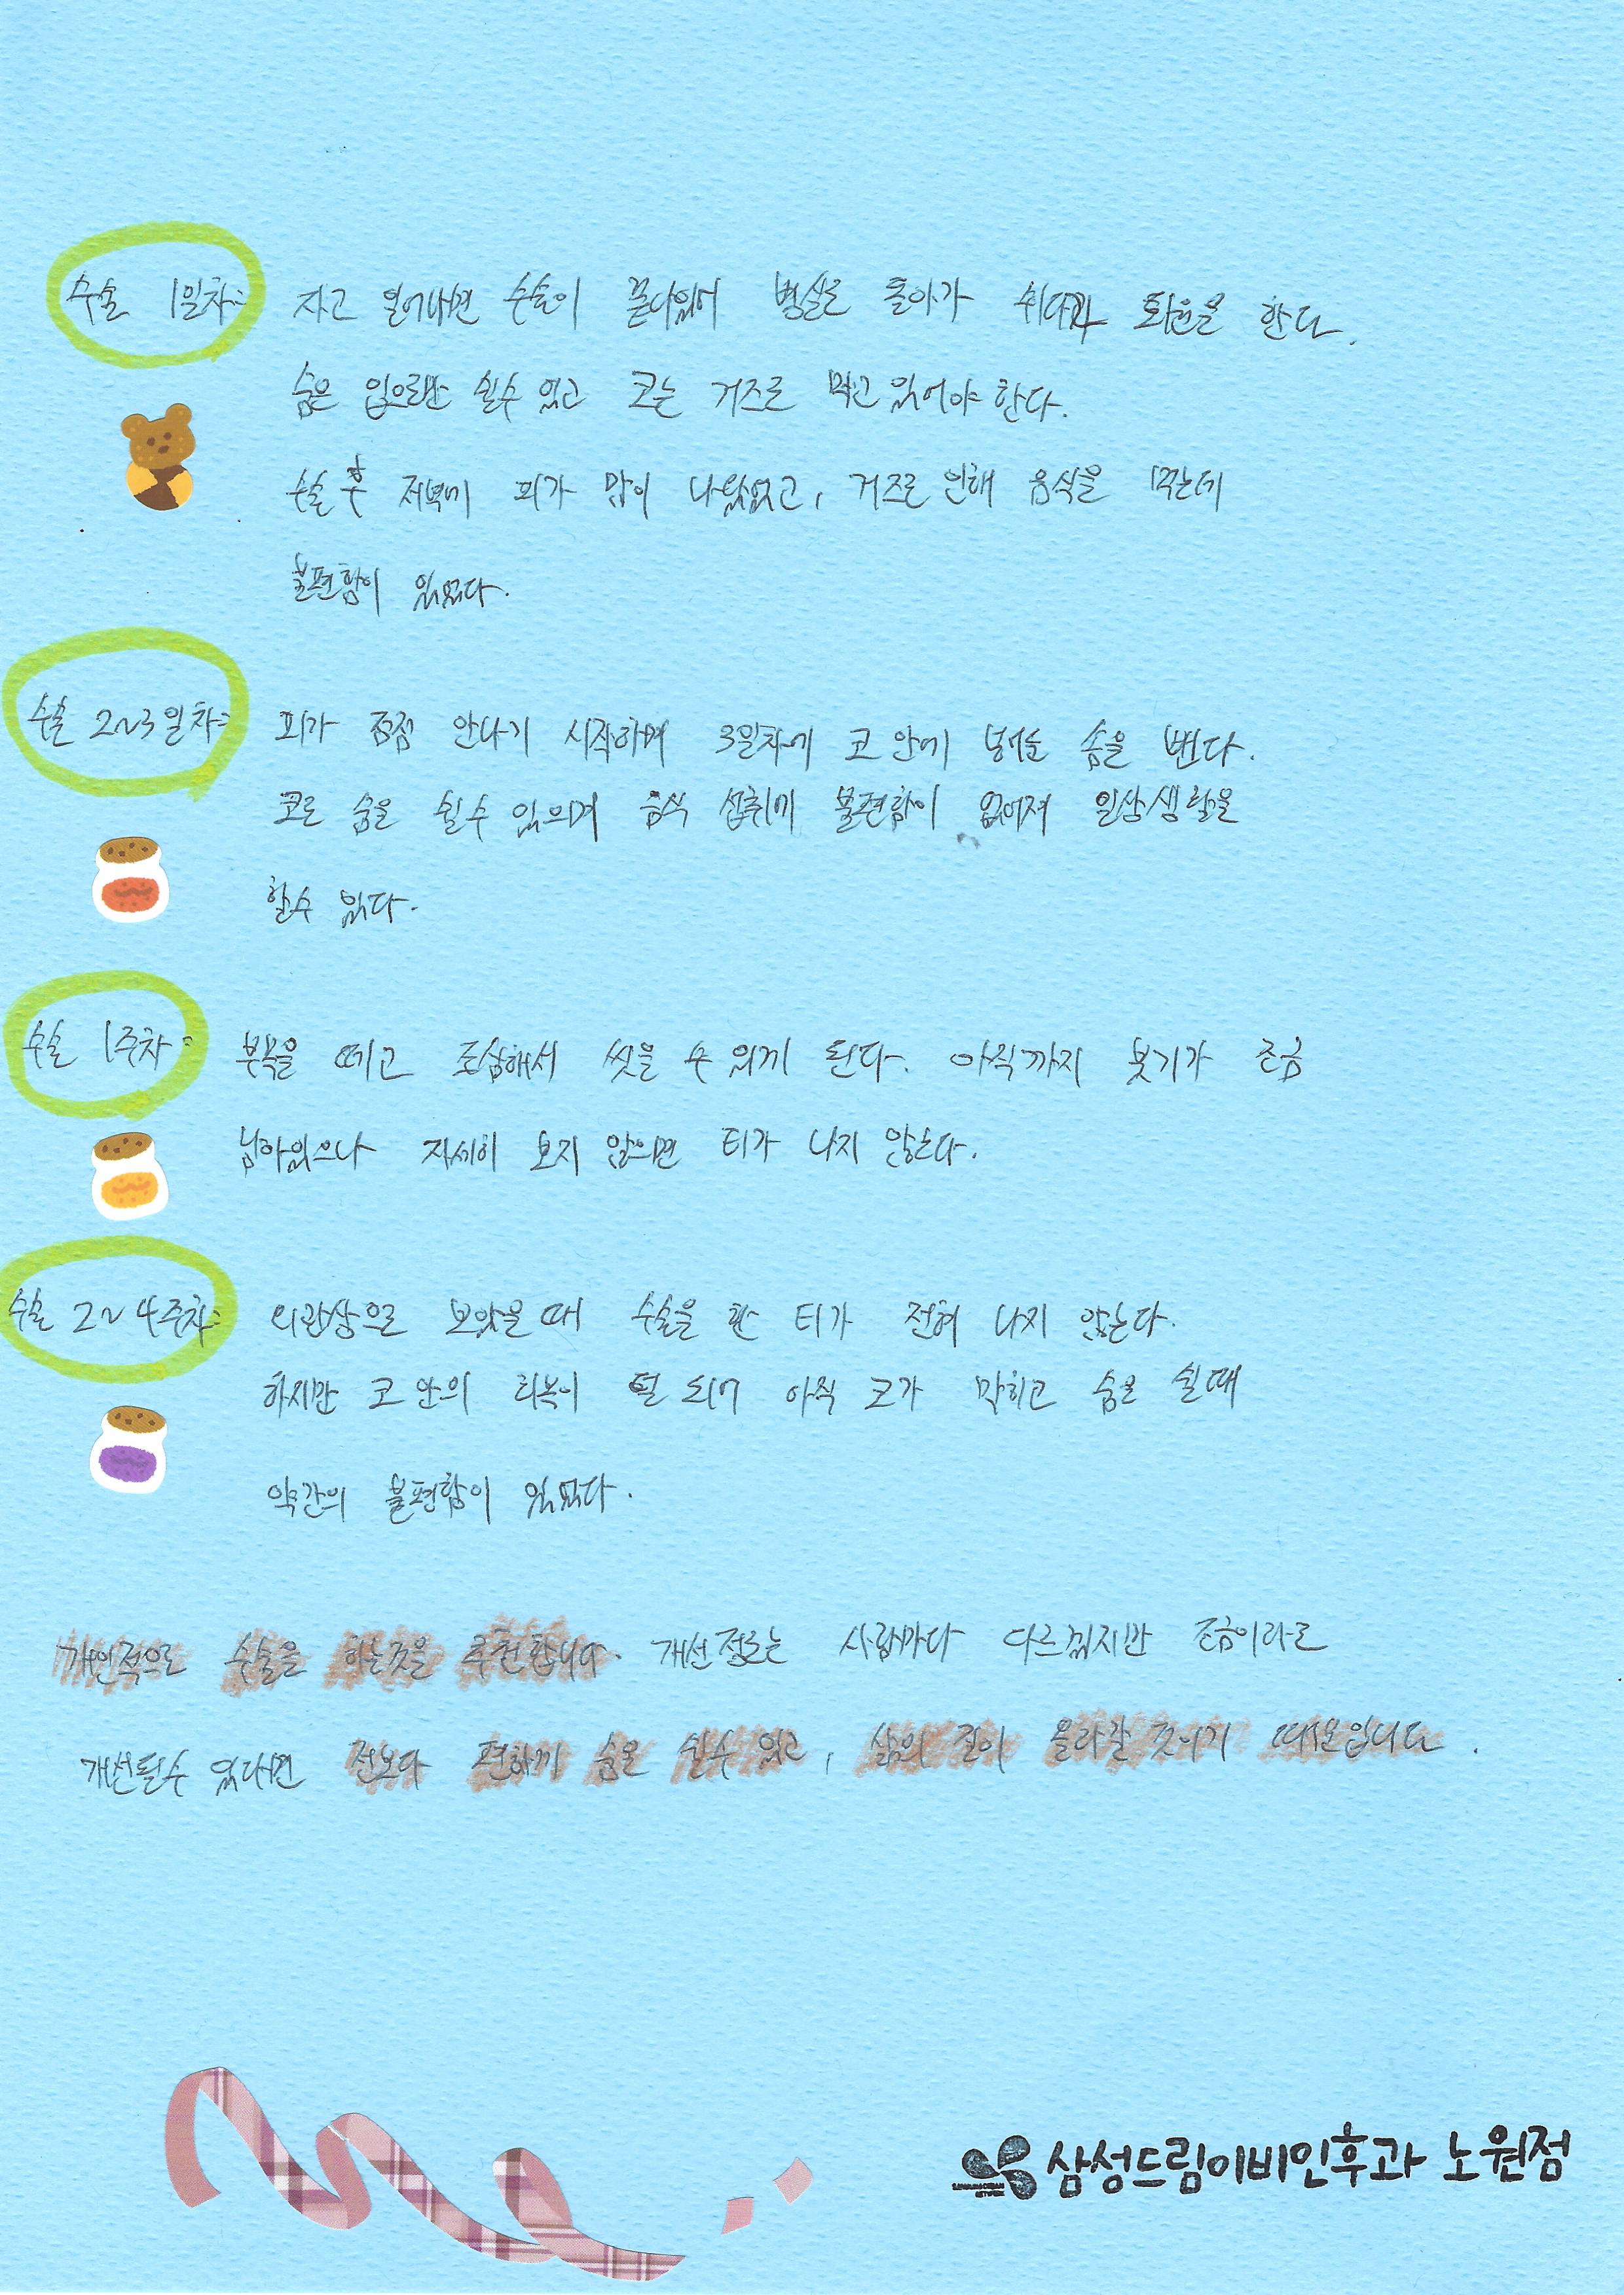 수술 1일차: 자고 일어나면 수술이 끝나있어 병실로 돌아가 쉬다가 퇴원을 한다.
숨은 입으로만 쉴수 있고 코는 거즈로 막고 있어야 한다.
수술 후 저녁에 피가 많이 나왔었고, 거즈로 인해 음식을 먹는데
불편함이 있었다.
수술 2~3일차: 피가 점점 안나기 시작하며 3일차에 코 안에 넣어둔 솜을 뺀다.
코로 숨을 쉴수 있으며 음식 섭취에 불편함이 없어져 일상생활을
할수 있다.
수술 1주차: 부목을 떼고 조심해서 씻을 수 있게 된다. 아직까지 붓기가 조금
남아있으나 자세히 보지 않으면 티가 나지 않는다.
수술 2~4주차: 외관상으로 보았을때 수술을 한 티가 전혀 나지 않는다.
하지만 코 안의 회복이 덜 되어 아직 코가 막히고 숨을 쉴때
약간의 불편함이 있었다.
개인적으로 수술을 하는것을 추천합니다. 개선정도는 사람마다 다르겠지만 조금이라도
개선될수 있다면 전보다 편하게 숨을 쉴수 있고, 삶의 질이 올라갈 것이기 때문입니다.
삼성드림이비인후과 노원점